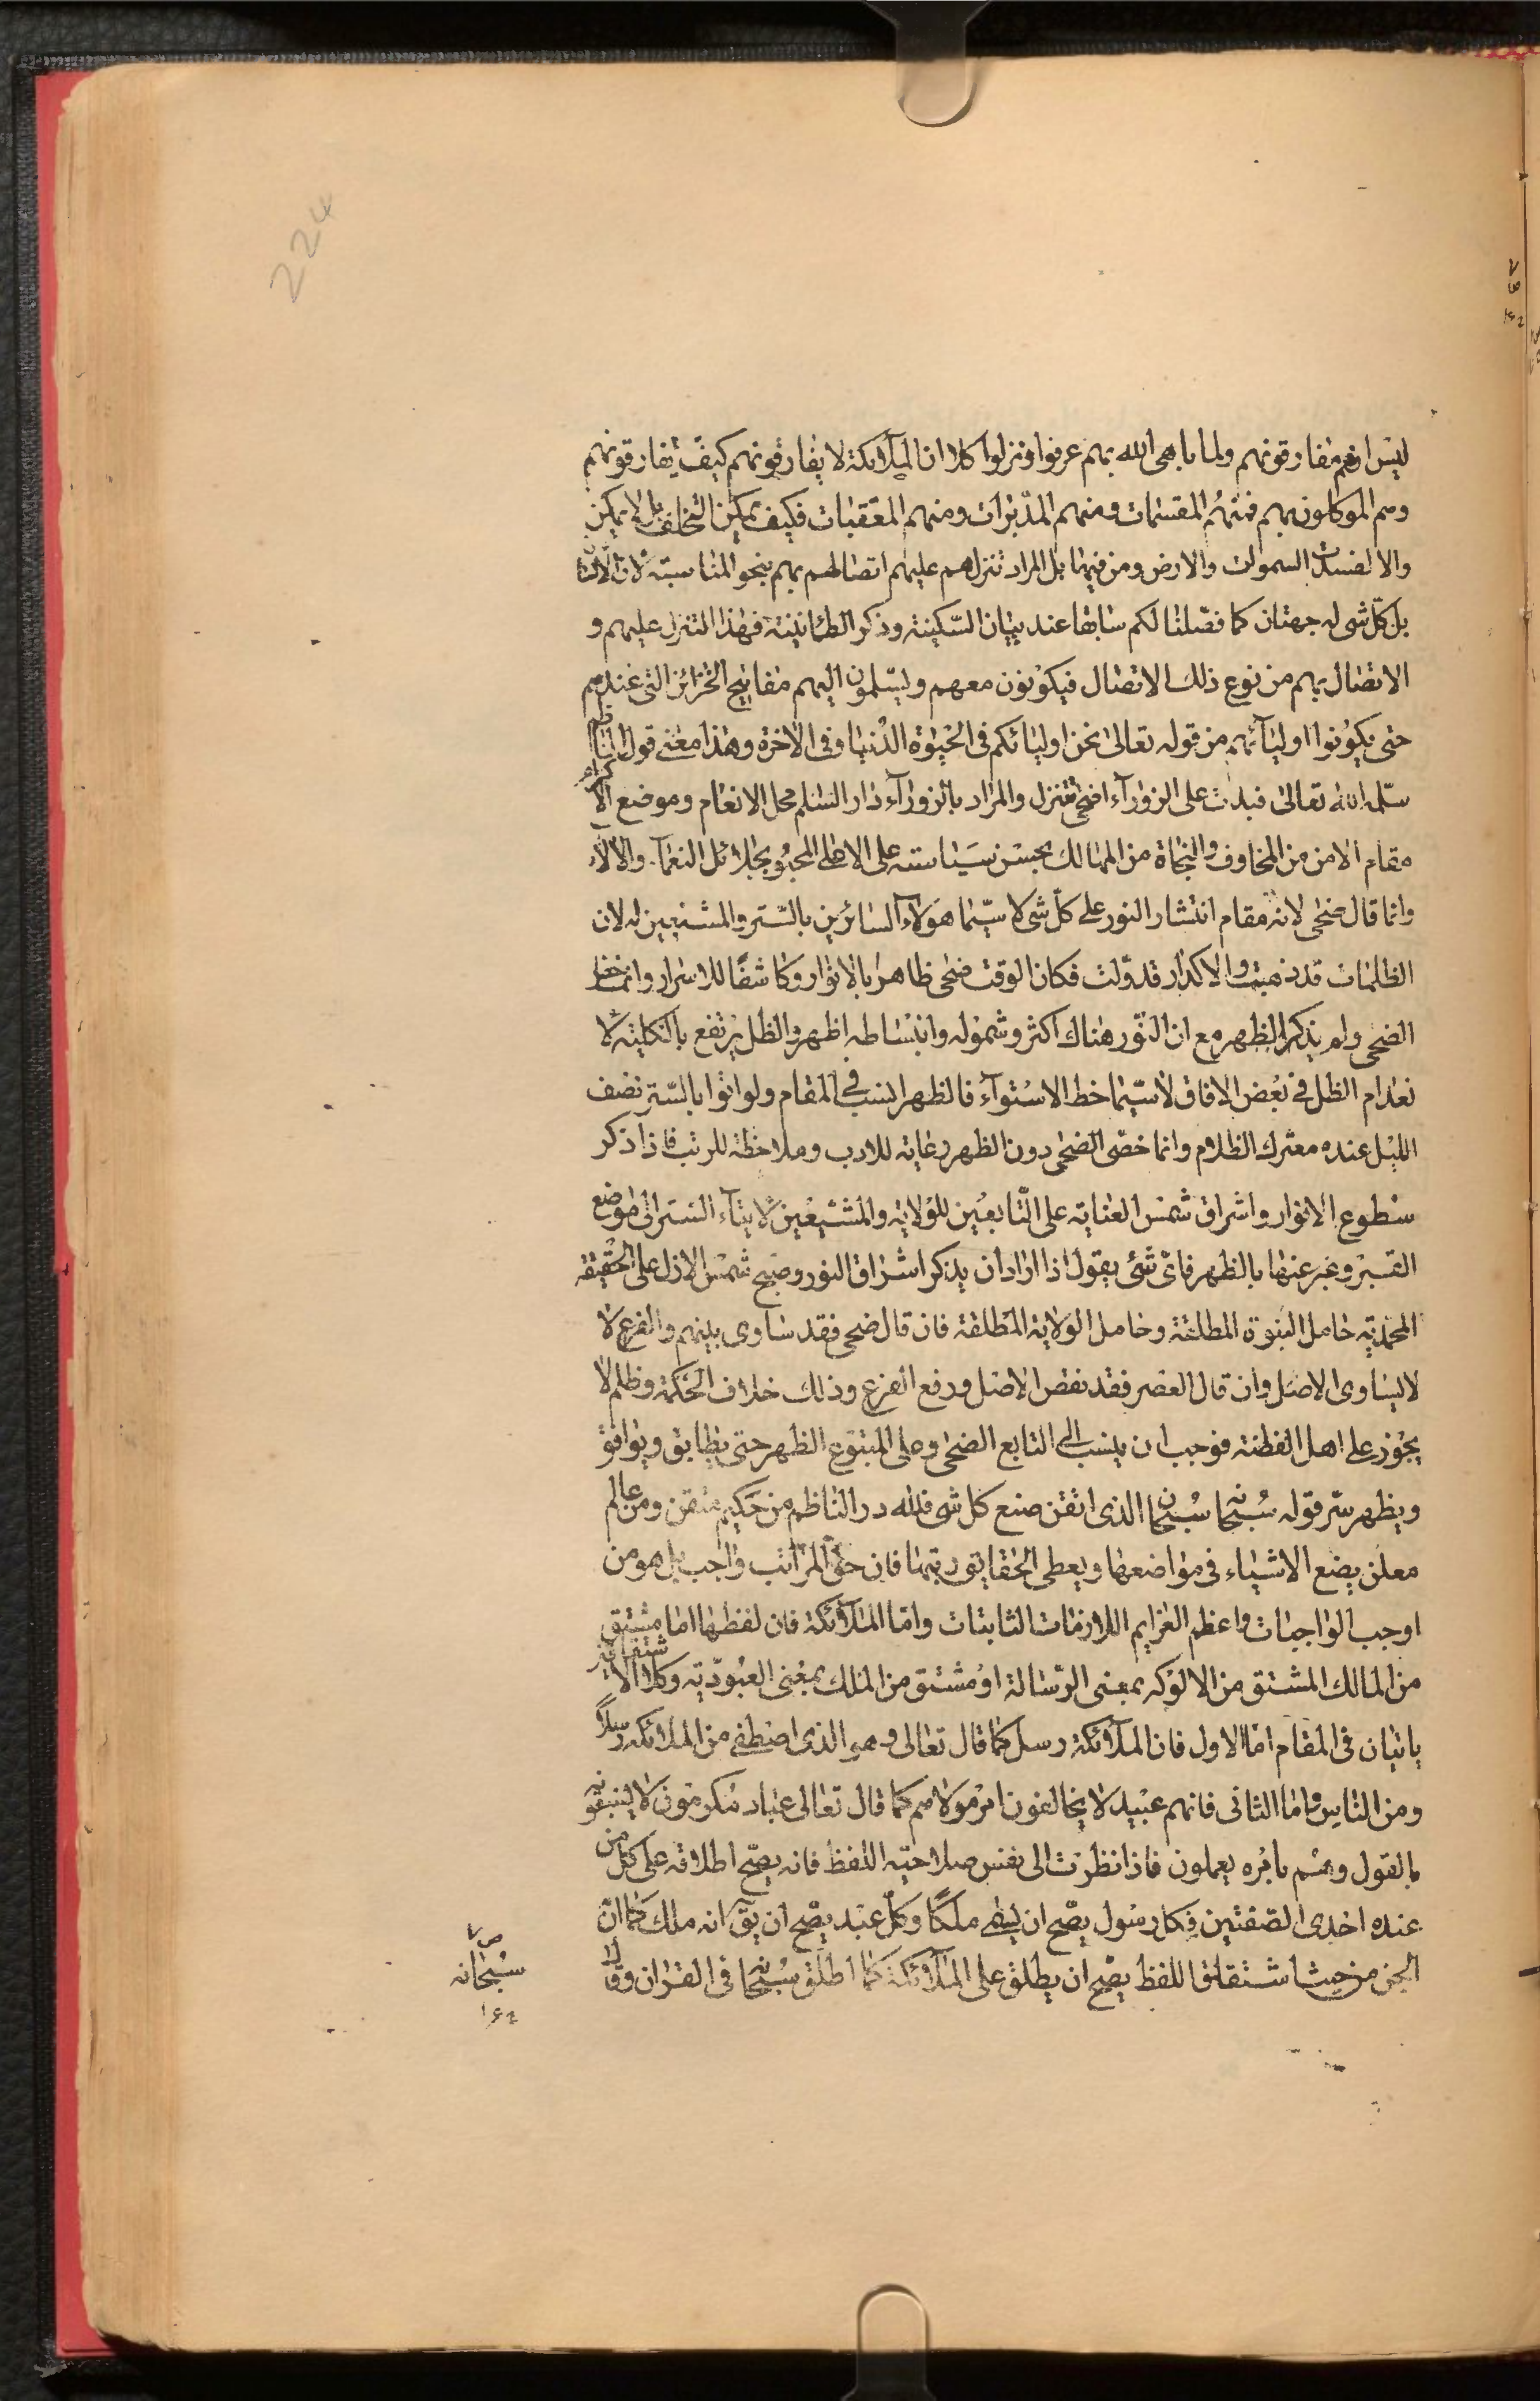 224
ليس انهم مفارقونهم ولما باهى الله بهم عرفوا ونزلوا كلا ان الملآئكة لا يفارقونهم كيف يفارقونهم
وهم الموكلون بهم فمنهم المقسمات ومنهم المدبرات ومنهم المعقبات فكيف يمكن التخلف بل لا يمكن
والا لفسدت السموات والارض ومن فيها بل المراد تنزلهم عليهم اتصالهم بهم بنحو المناسبة لان
بل كل شئ له جهتان كما فصّلنا لكم سابقا عند بيان السّكينة وذكر الطمانينة فهذا التنزل عليهم و
الاتصال بهم من نوع ذلك الاتصال فيكونون معهم ويسّلمون اليهم مفاتيح الخزائن التى عندهم
حتى يكونوا اوليآئهم من قوله تعالى نحن اوليائكم فى الحيوة الدنيا وفى الاخرة وهذا معنى قول الناظم
سلّمه الله تعالى فبدت على الزورآء اضحى تنزل والمراد بالزورآء دار السّلم محل الانعام وموضع الاكرام
مقام الامن من المخاوف والنجاة من المهالك بحسن سياسته على الاهالى المحبو بجلائل النعمآء والالآء
وانما قال ضحى لانه مقام انتشار النور على كلّ شئ لا سيّما هؤلآء السائرين بالستر والمشيعين له لان
الظلمات قد ذهبت والاكدار قد ولت فكان الوقت ضحى ظاهرا بالانوار وكاشفًا للاسرار وانما خص
الضحى ولم يذكر الظهر مع ان النّور هناك اكثر وشموله وانبساطه اظهر والظل يرتفع بالكلية لا
نعدام الظل فى بعض الافاق لاسيّما خط الاستوآء فالظهر انسب فى المقام ولو اتوا بالسّتر نصف
الليل عنده معترك الظلام وانما خصّ الضحى دون الظهر رعاية للادب وملاحظة للرتب فاذا ذكر
سطوع الانوار واشراق شمس العناية على التّابعين للولاية والمشيّعين لايتآء الستر الى موضع
القبر وعبر عنها بالظهر فاىّ شئ يقول اذا اراد ان يذكر اشراق النور وصبح شمس الازل على الحقيقة
المحمدية حامل النبوة المطلقة وحامل الولاية المطلقة فان قال ضحى فقد ساوى بينهم والفرع لا
لا يساوى الاصل وان قال العصر فقد نقص الاصل ورفع الفرع وذلك خلاف الحكمة وظلم لا
يجوز على اهل الفطنة فوجب ان ينسب الى التابع الضحى وعلى المتبوع الظهر حتى يطابق ويوافق
ويظهر سّر قوله سبحانه سبحان الذى اتقن صنع كل شئ فلله در الناظم من حكيم متقن ومن عالم
معلن يضع الاشياء فى مواضعها ويعطى الحقايق رتبها فان حق المراتب واجب بل هو من
اوجب الواجبات واعظم العزايم اللازمات الثابتات وامّا الملآئكة فان لفظها اما مشتق
من المالك المشتق من الالوكه بمعنى الرّسالة او مشتق من الملك بمعنى العبودّية وكلا الاشتقاقين
ياتيان فى المقام امّا الاول فان الملآئكة رسل كما قال تعالى وهو الذى اصطفى من الملائكه رسلاً
ومن النّاس واما الثانى فانهم عبيد لا يخالفون امر مولاهم كما قال تعالى عباد مكرمون لا يسبقونه
بالقول وهم بامره يعملون فاذا نظرت الى نفس صلاحيّه اللفظ فانه يصّح اطلاقه على كل من
عنده احدى الصّفتين فكل رسول يصّح ان يسّمى ملكًا وكل عبد يصّح ان يقّ انه ملك كما ان
الجن من حيث اشتقاق اللفظ يصّح ان يطلق على الملآئكة كما اطلق سبحانه فى القران وقا
سبحانه